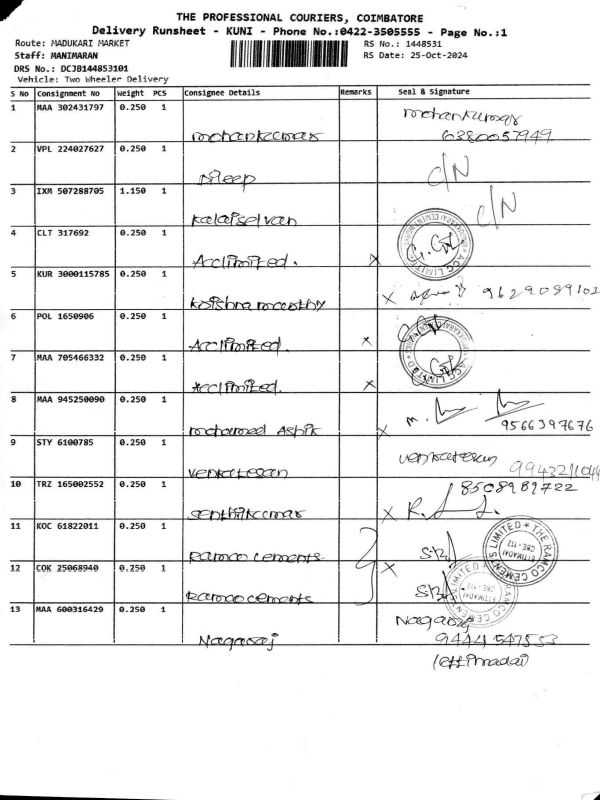 THE PROFESSIONAL COURIERS, COIMBATORE
Delivery Runsheet - KUNI - Phone No.:0422-3505555 - Page No.:1
Route: MADUKARI MARKET RS No.: 1448531
Staff: MANIMARAN RS Date: 25-Oct-2024
DRS No.: DCJB144853101
Vehicle: Two Wheeler Delivery
S No Consignment No Weight PCS Consignee Details Remarks Seal & Signature
1 MAA 302431797 0.250 1 mohankumar mohankumar
6380057949
2 VPL 224027627 0.250 1 Dileep C/N
3 IXM 507288705 1.150 1 Kalaiselvan C/N
4 CLT 317692 0.250 1 Acclimited. x ACC LIMITED
5 KUR 3000115785 0.250 1 Krishnamoorthy x 9629089102
6 POL 1650906 0.250 1 Acclimited. x
7 MAA 705466332 0.250 1 Acclimited. x
8 MAA 945250090 0.250 1 mohamed Ashik x
9566397676
9 STY 6100785 0.250 1 venkatesan venkatesan
10 TRZ 165002552 0.250 1 Senthilkumar x
8508989722
11 KOC 61822011 0.250 1 Ramco cements THE RAMCO CEMENTS LIMITED
ETTIMADAI
CBE - 112
12 COK 25068940 0.250 1 Ramco cements x
13 MAA 600316429 0.250 1 Nagaraj Nagaraj
9444547553
(ettimadai)